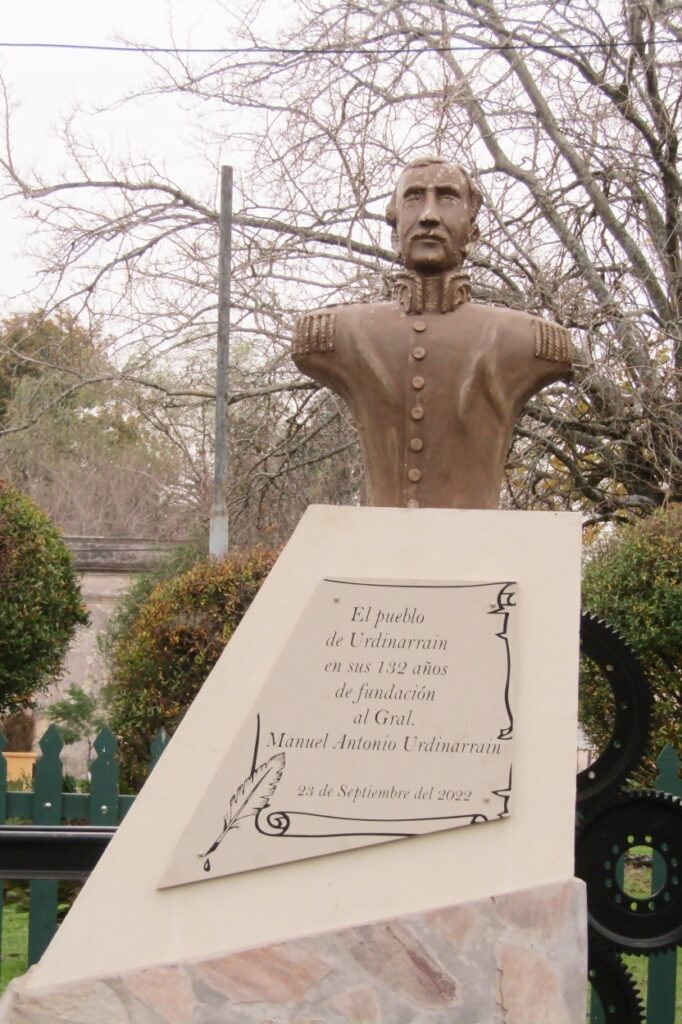 El pueblo
de Urdinarrain
en sus 132 años
de fundación
al Gral.
Manuel Antonio Urdinarrain
23 de Septiembre del 2022